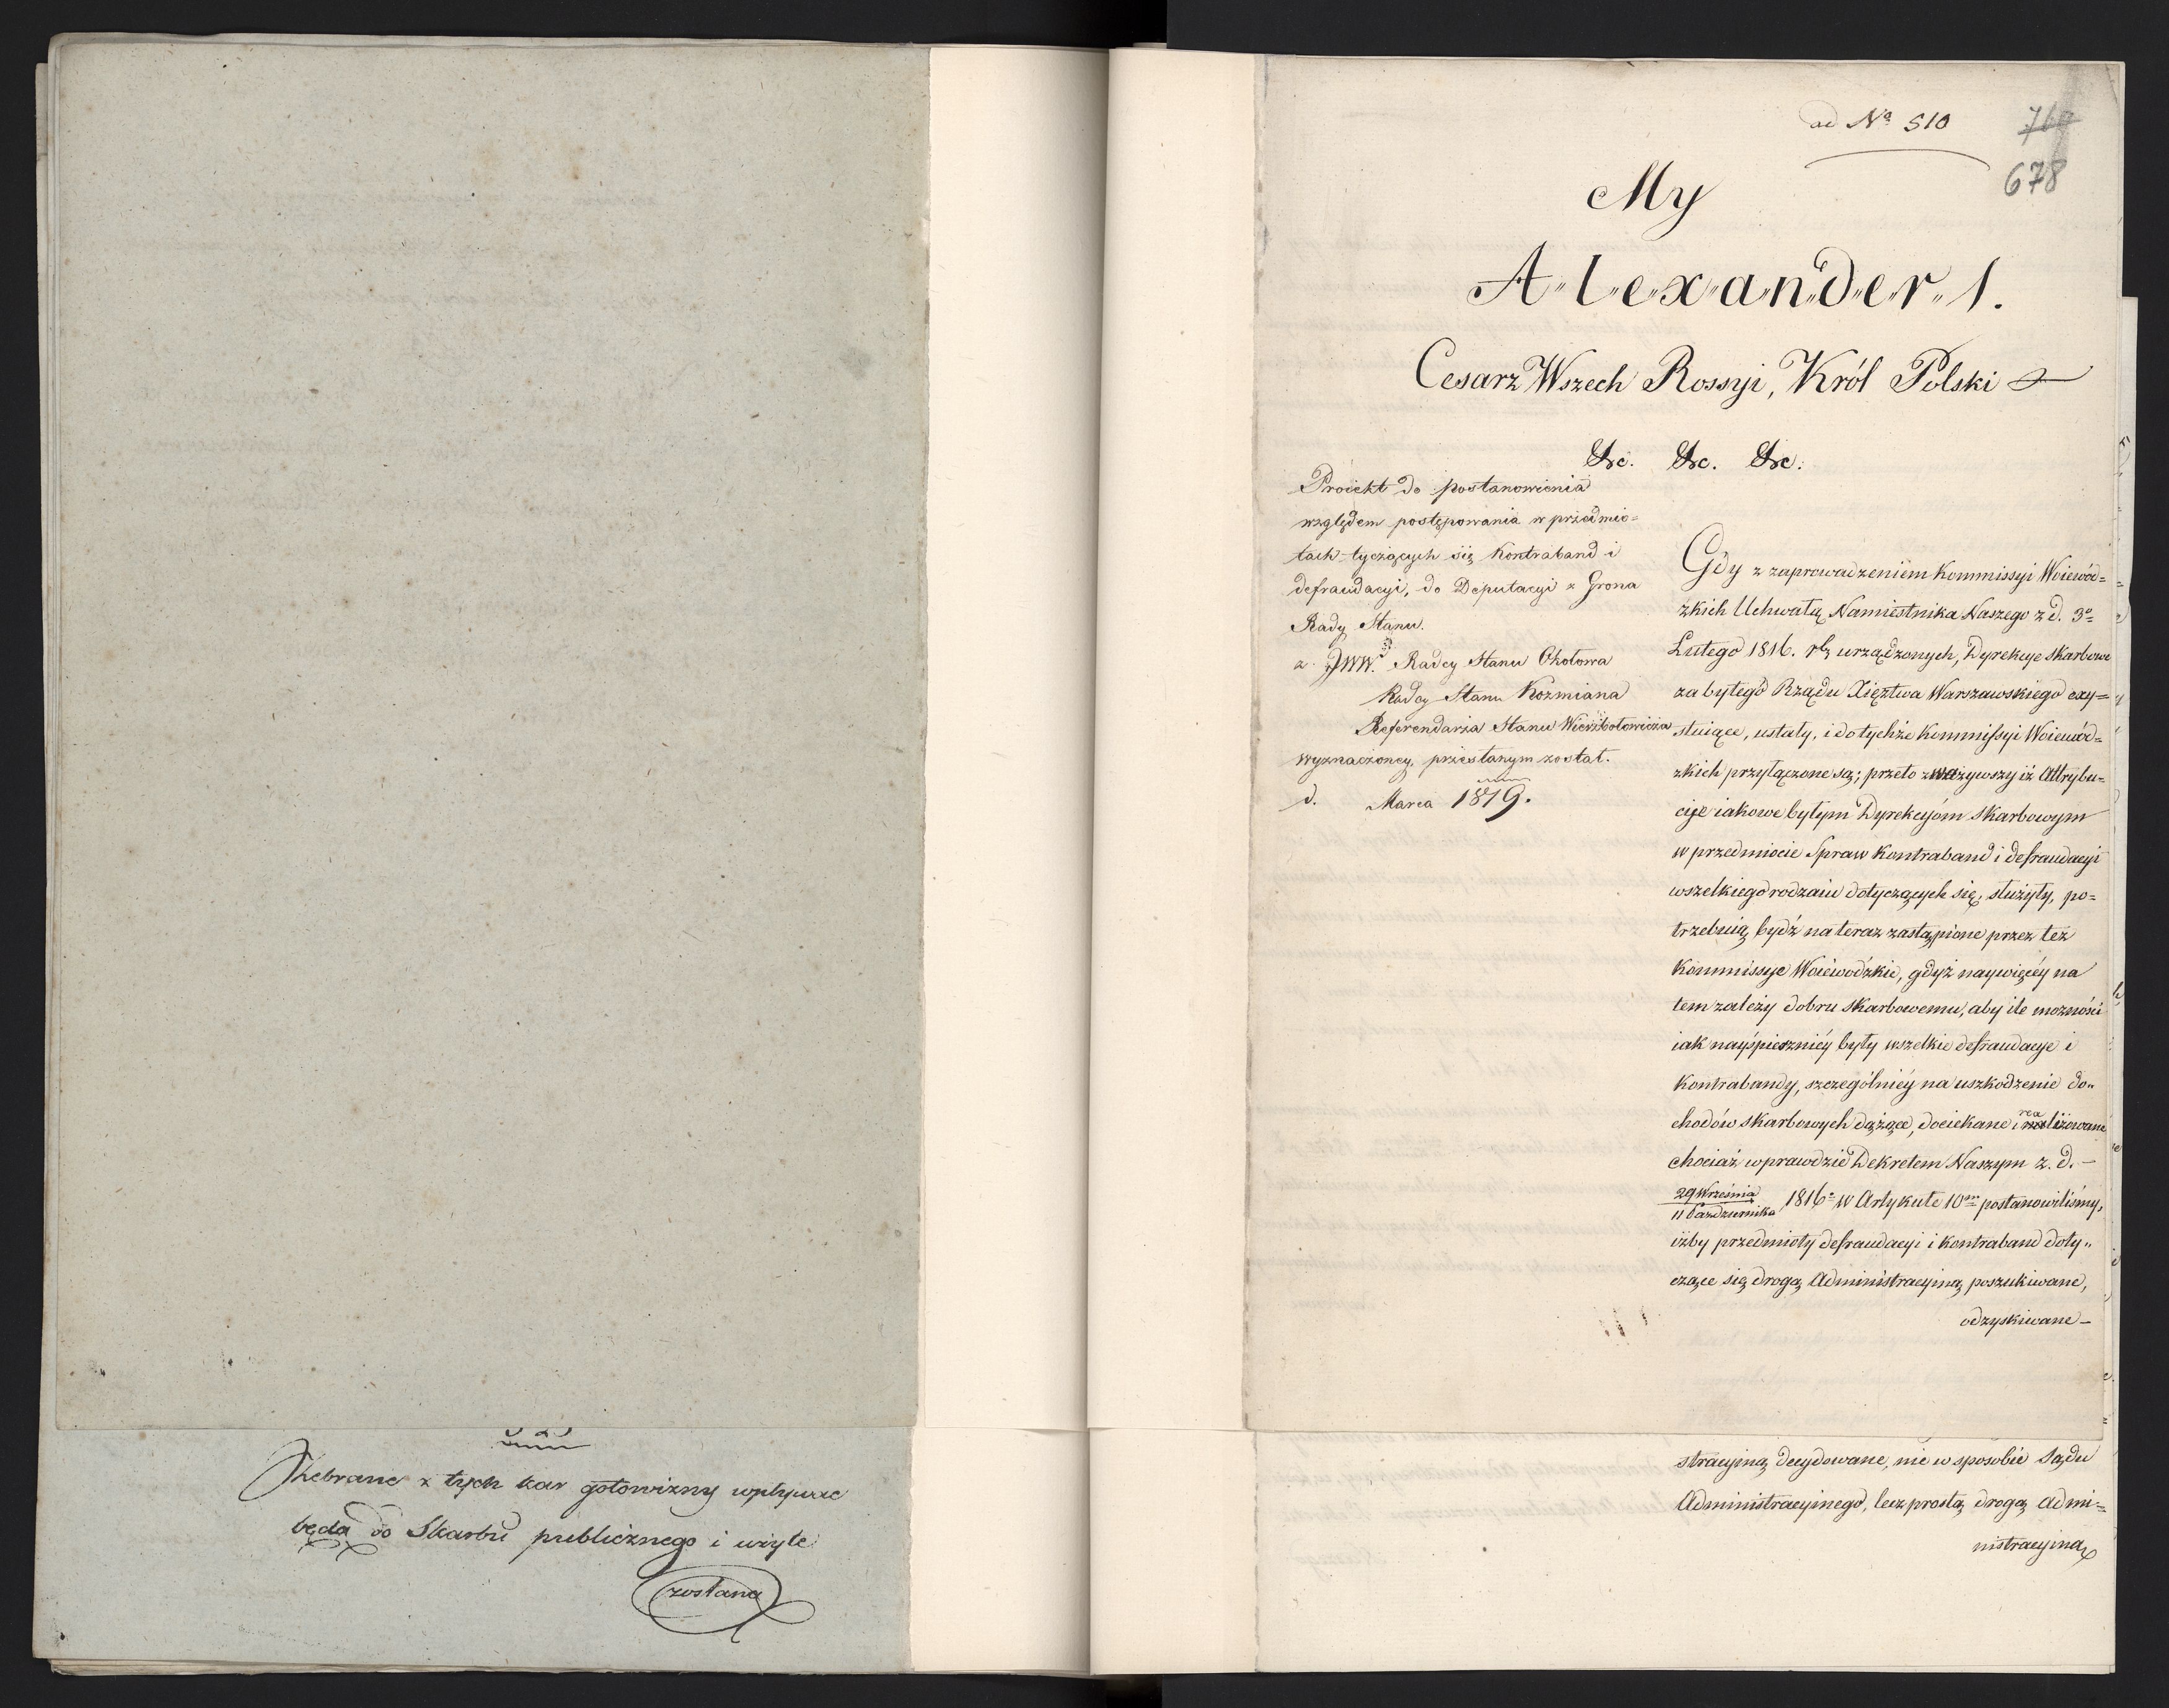 Zebrane z tych kar gotowizny wpływać
będą do Skarbu publicznego i użyte
zostaną
ad Nº 510
760
678
My
A„l„e„x„a„n„d„e„r„ 1.
Cesarz Wszech Rossyi, Król Polski
&c. &c. &c.
Proiekt do postanowienia
względem postępowania w przedmio=
tach tyczących się Kontraband i
defraudacyi, do Deputacyi z Grona
Rady Stanu.
z JWW. Radcy Stanu Okołowa
Radcy Stanu Kozmiana
Referendarza Stanu Wierzbołowicza
wyznaczoney, przesłanym został.
d. Marca 1819.
Gdy z zaprowadzeniem Kommissyi Woiewód=
zkich Uchwałą Namiestnika Naszego z d. 3º
Lutego 1816. rb urządzonych, Dyrekcye skarbowe
za byłego Rządu Xięztwa Warszawskiego exy=
stuiące, ustały, i do tychże Kommissyi Woiewód=
zkich przyłączone są; przeto zważywszy iż Attrybu=
cye iakowe byłym Dyrekcyóm Skarbowym
w przedmiocie Spraw Kontraband i defraudacyi
wszelkiego rodzaiu dotyczących się, służyły, po=
trzebuią bydź na teraz zastąpione przez też
Kommissye Woiewódzkie, gdyż naywięcéy na
tem zależy dobru skarbowemu, aby ile możności
iak nayśpieszniéy były wszelkie defraudacye i
Kontrabandy, szczególniéy na uszkodzenie do„
chodów skarbowych dążące, dociekane i realizowane
chociaż wprawdzie Dekretem Naszym z. d. –
29 Września
11 Października 1816º w Artykule 10m postanowiliśmy,
iżby przedmioty defraudacyi i kontraband doty„
czące się drogą Administracyiną poszukiwane,
odzyskiwane –
stracyiną decydowane, nie w sposobie Sądu
Administracyinego, lecz prostą drogą Admi=
nistracyiną